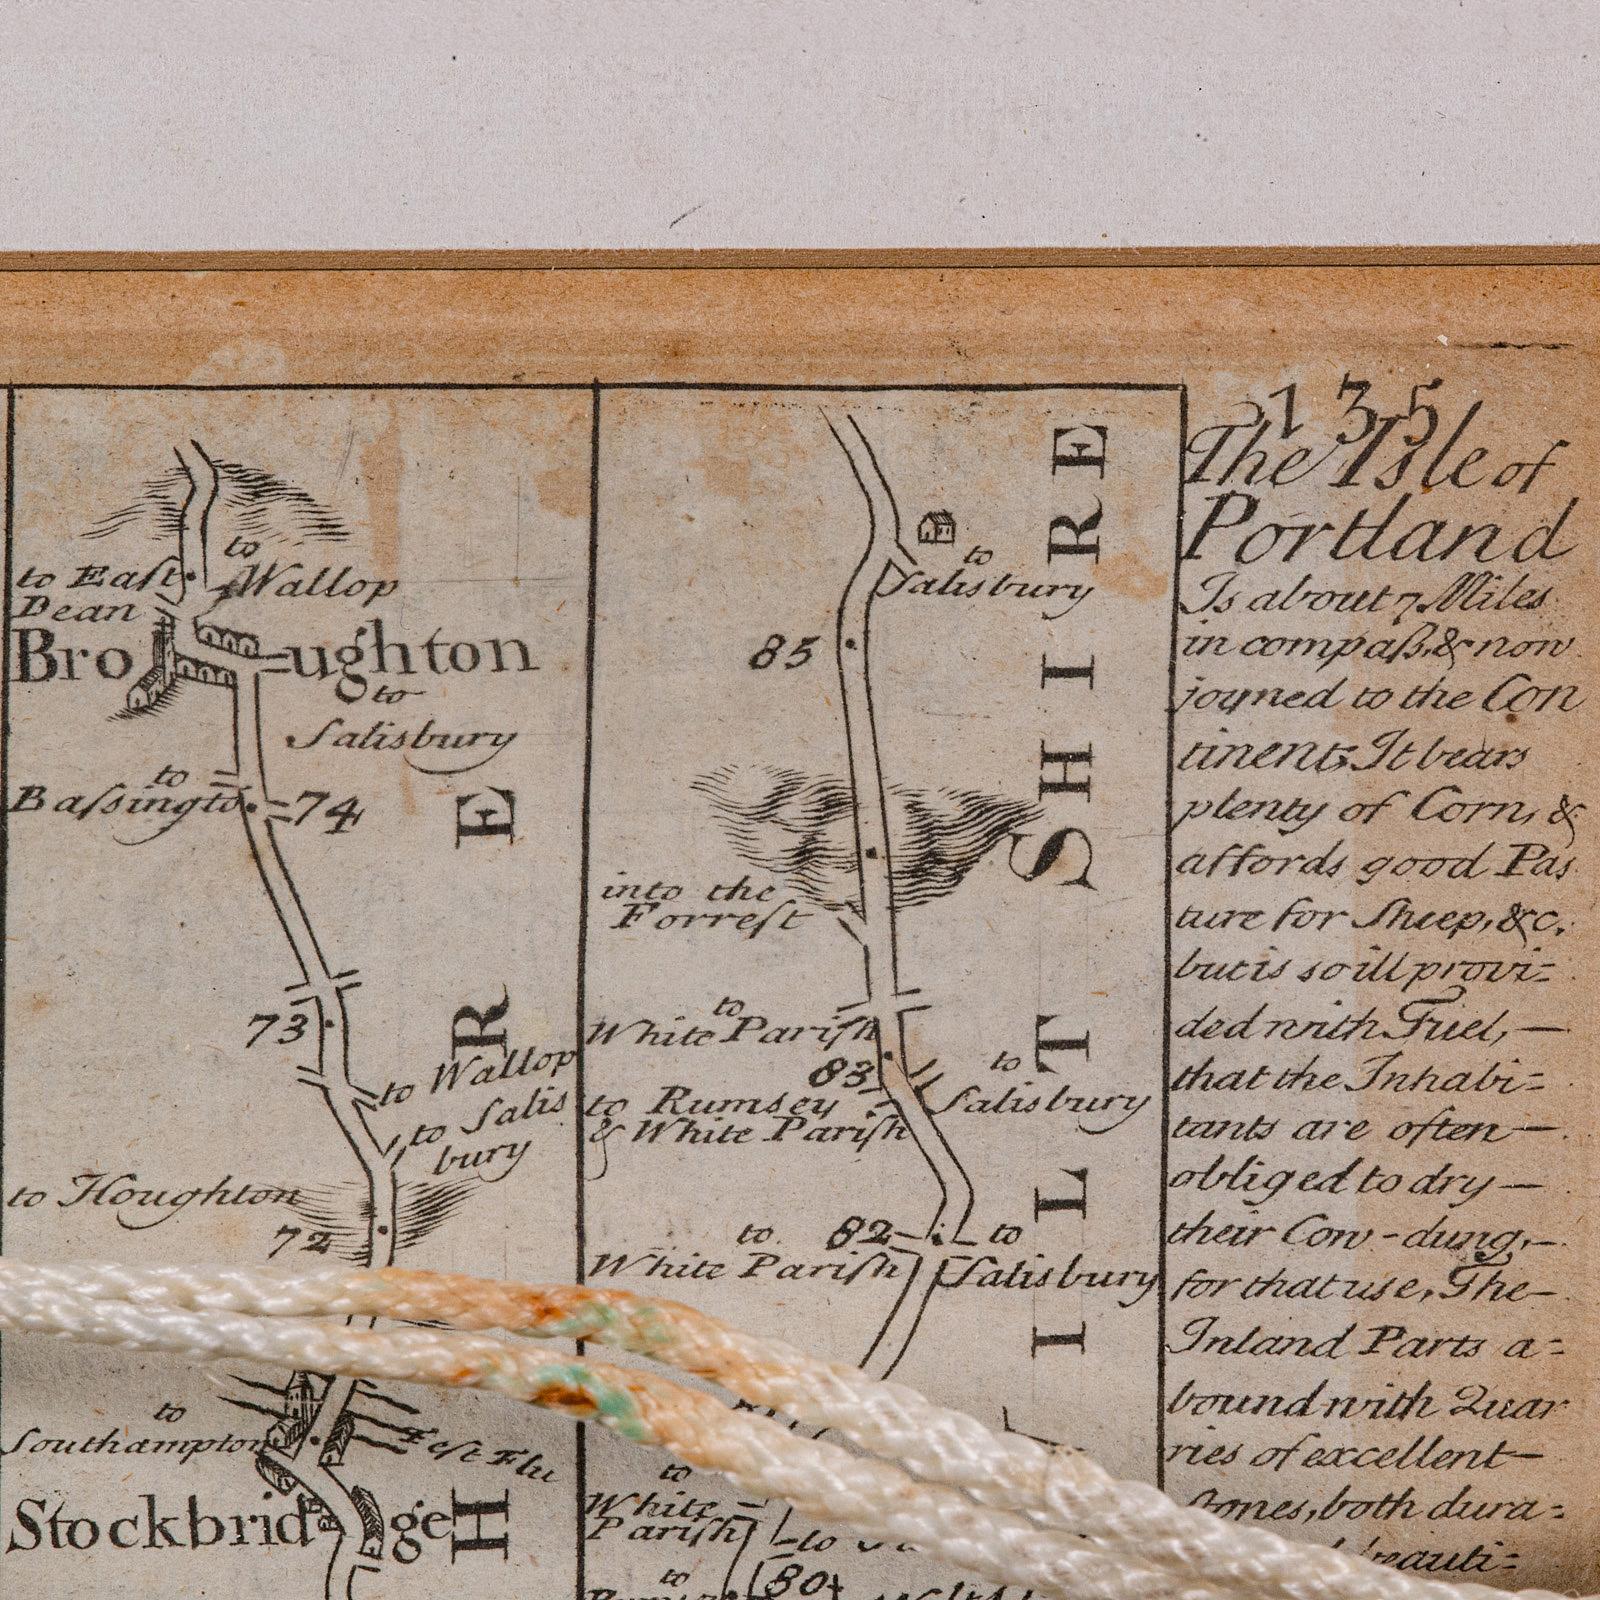 135
The Isle of
Portland
Is about 7 Miles
in compaſs, & now
joyned to the Con
tinent; It bears
plenty of Corn, &
affords good Pas
ture for Sheep, &c.
but is so ill provi=
ded with Fuel, —
that the Inhabi=
tants are often —
obliged to dry —
their Cow-dung, —
for that use, The —
Inland Parts a=
bound with Quar
ries of excellent —
Stones, both dura=
beauti=
to
Wallop
to Eaſt
Dean
Broughton
to
Salisbury
to
Baſsingto
74
E
73
R
to Wallop
to Salis
bury
to Houghton
72
to
Southampton
Teſt Flu
Stockbridge
H
SHIRE
to
Salisbury
85
into the
Forreſt
to
White Pariſh
83
to
Salisbury
to Rumsey
& White Pariſh
T
L
I
to
White Pariſh
82
to
Salisbury
to
White
Pariſh
to
80
to